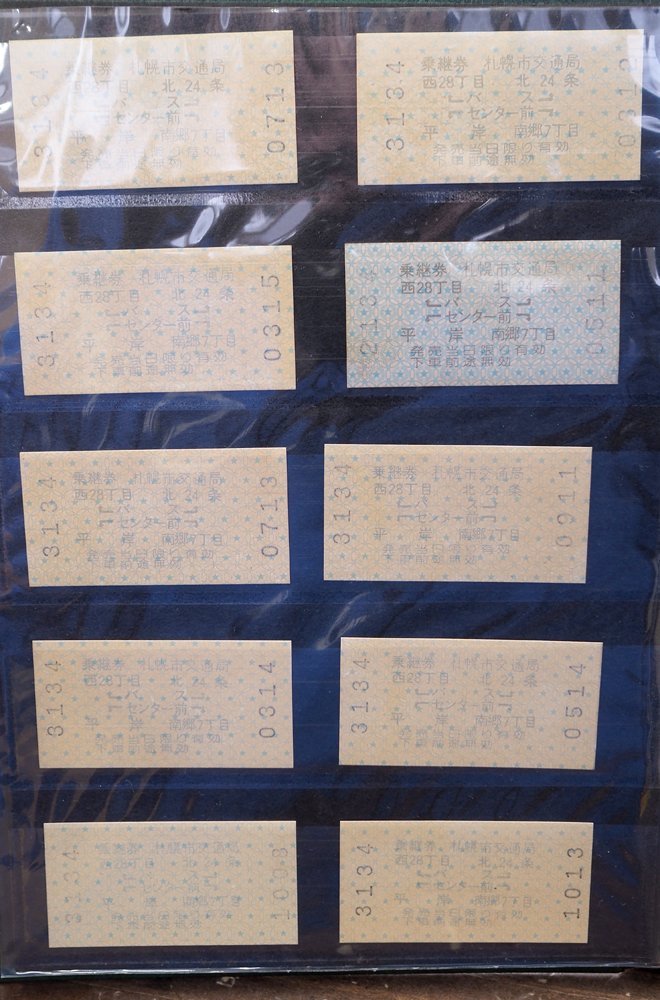 3134
乗継券 札幌市交通局
西28丁目 北 24 条
バ ス
センター前
平 岸 南郷7丁目
発売当日限り有効
下車前途無効
0713
3134
乗継券 札幌市交通局
西28丁目 北 24 条
バ ス
センター前
平 岸 南郷7丁目
発売当日限り有効
下車前途無効
0313
3134
乗継券 札幌市交通局
西28丁目 北 24 条
バ ス
センター前
平 岸 南郷7丁目
発売当日限り有効
下車前途無効
0315
213
乗継券 札幌市交通局
西28丁目 北 24 条
バ ス
センター前
平 岸 南郷7丁目
発売当日限り有効
下車前途無効
0511
3134
乗継券 札幌市交通局
西28丁目 北 24 条
バ ス
センター前
平 岸 南郷7丁目
発売当日限り有効
下車前途無効
0713
3134
乗継券 札幌市交通局
西28丁目 北 24 条
バ ス
センター前
平 岸 南郷7丁目
発売当日限り有効
下車前途無効
0911
3134
乗継券 札幌市交通局
西28丁目 北 24 条
バ ス
センター前
平 岸 南郷7丁目
発売当日限り有効
下車前途無効
0314
3134
乗継券 札幌市交通局
西28丁目 北 24 条
バ ス
センター前
平 岸 南郷7丁目
発売当日限り有効
下車前途無効
0514
3134
乗継券 札幌市交通局
西28丁目 北 24 条
バ ス
センター前
平 岸 南郷7丁目
下車前途無効
3134
乗継券 札幌市交通局
西28丁目 北 24 条
バ ス
センター前
平 岸 南郷7丁目
発売当日限り有効
下車前途無効
1013